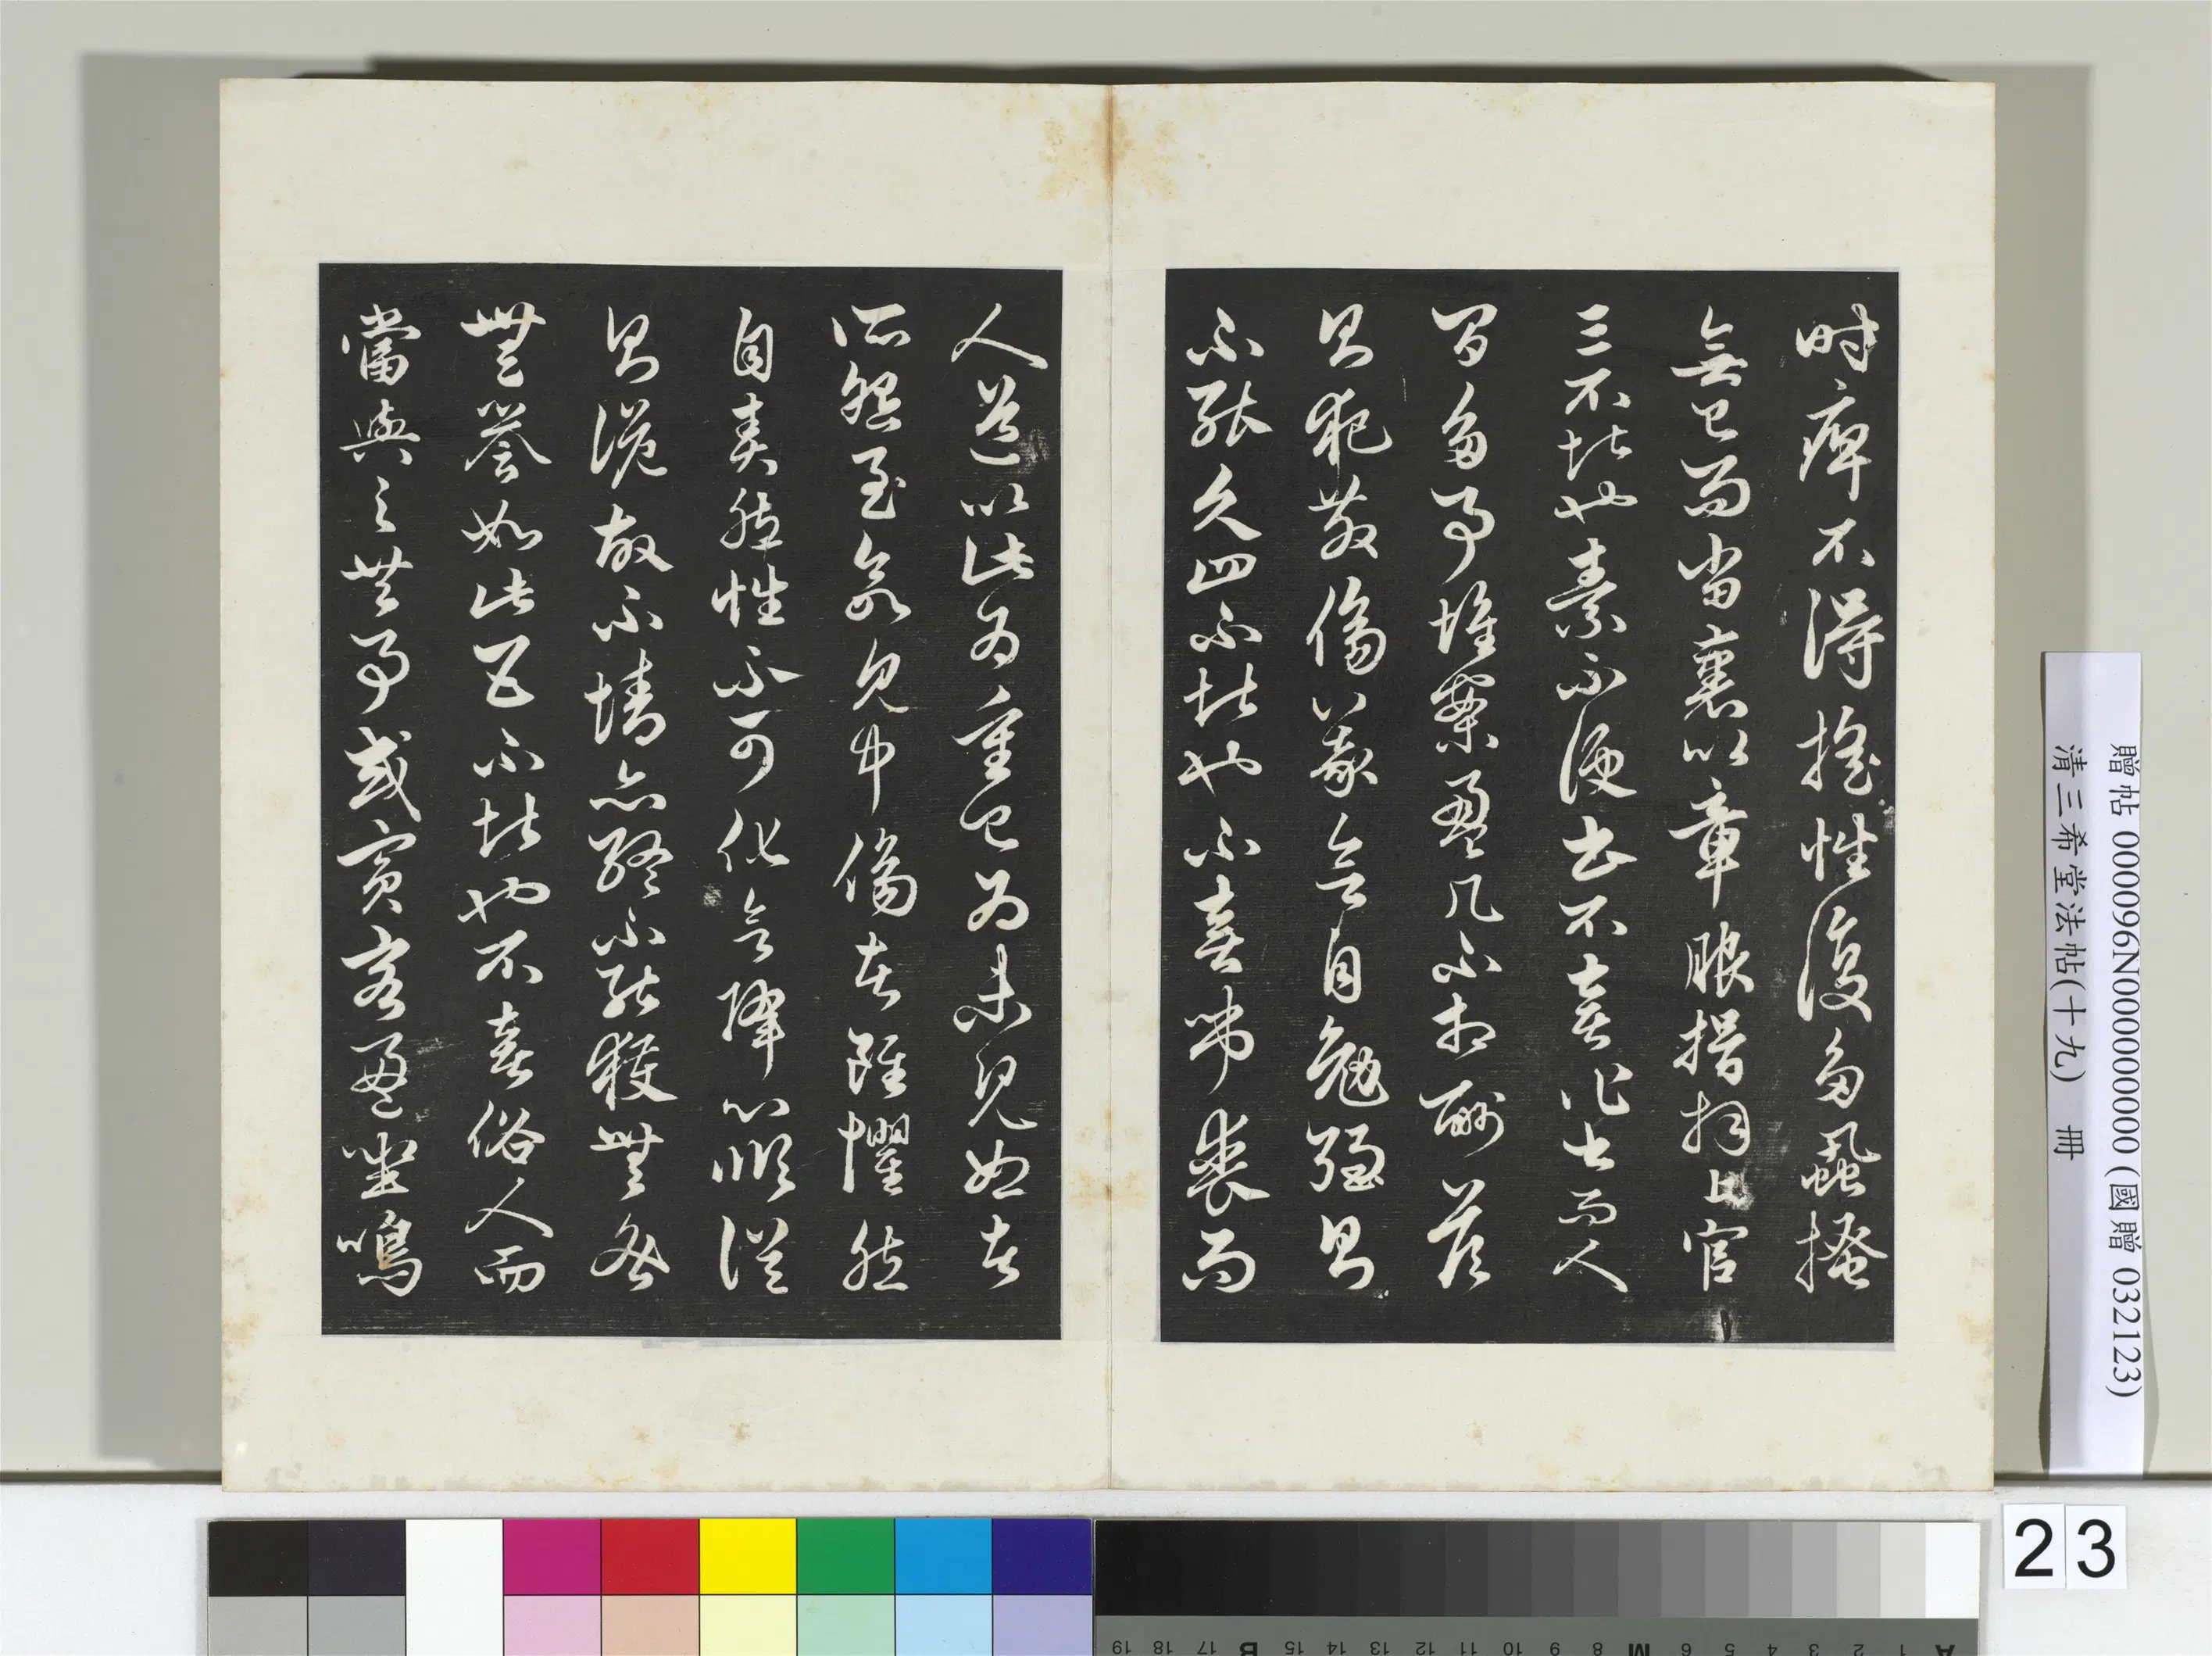 時痺不得搖性復多蝨搔
無已而當裹以章服揖拜上官
三不堪也素不便書不喜作書而人
間多事堆案盈几不相酬答
則犯教傷義欲自勉強則
不能久四不堪也不喜弔喪而
人道以此為重已為未見恕者
所怨至欲見中傷者雖懼然
自責然性不可化欲降心順從
則詭故不情亦終不能獲無咎
無譽如此五不堪也不喜俗人而
當與之共事或賓客盈坐鳴
贈帖 000096N000000000 (國贈 032123)
清三希堂法帖(十九) 冊
23
A 1 2 3 4 5 6 M 8 9 10 11 12 13 14 15 B 17 18 19